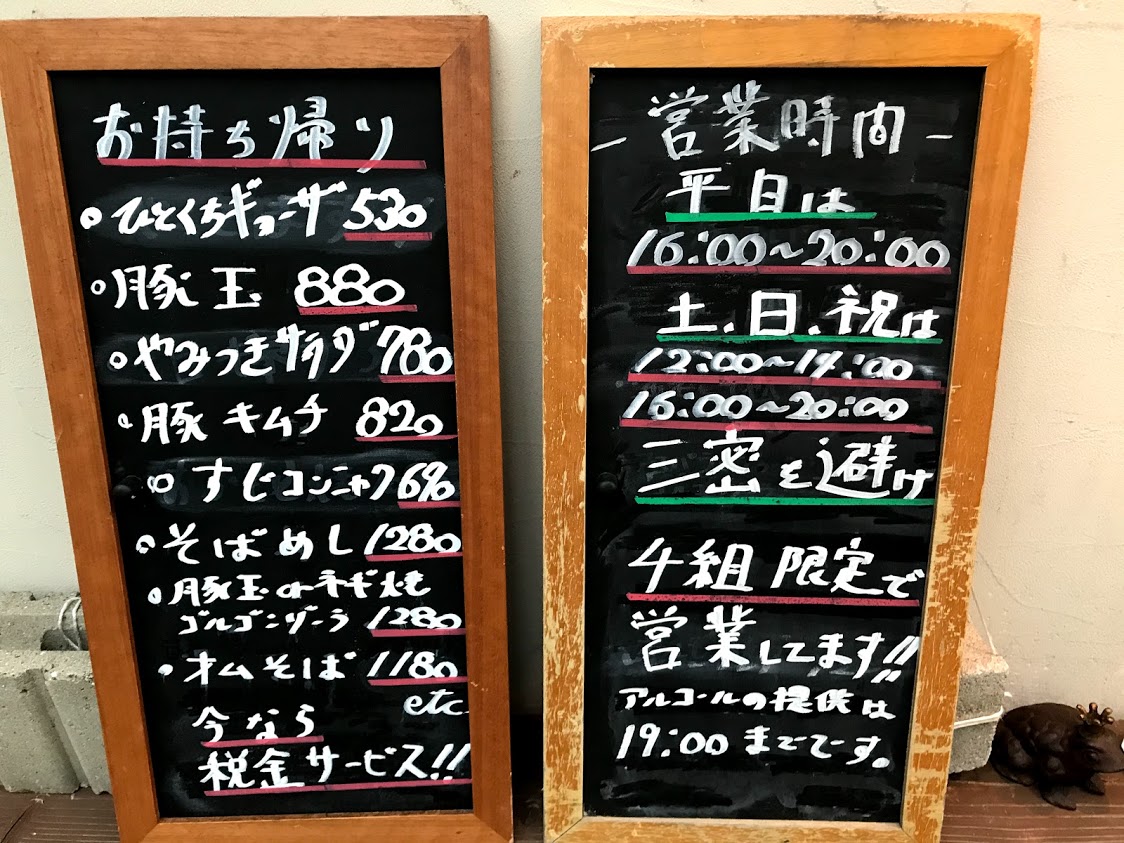 お持ち帰り
○ひとくちギョーザ 530
○豚玉 880
○やみつきサラダ 780
○豚キムチ 820
○すじコンニャク 690
○そばめし 1280
○豚玉orネギ焼
ゴルゴンゾーラ 1280
○オムそば 1180
etc
今なら
税金サービス!!
-営業時間-
平日は
16:00~20:00
土.日.祝は
12:00~14:00
16:00~20:00
三密を避け
4組限定で
営業してます!!
アルコールの提供は
19:00までです。